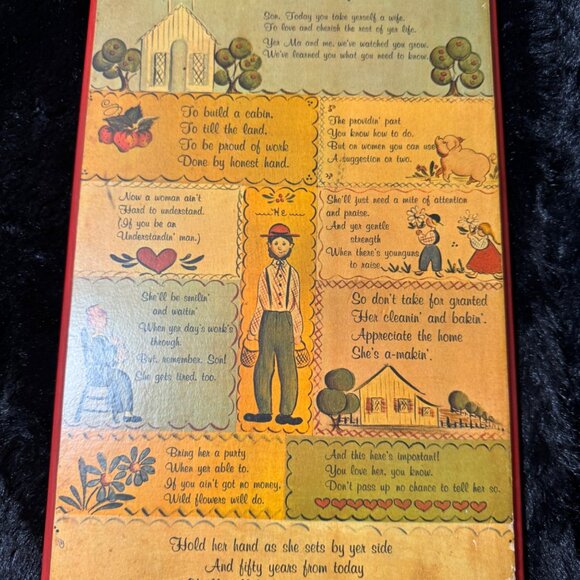 Son, Today you take yerself a wife,
To love and cherish the rest of yer life.
Yer Ma and me, we've watched you grow,
We've learned you what you need to know.
To build a cabin,
To till the land,
To be proud of work
Done by honest hand.
The providin' part
You know how to do.
But on women you can use
A suggestion or two.
Now a woman ain't
Hard to understand.
(If you be an
Understandin' man.)
He
She'll just need a mite of attention
and praise.
And yer gentle
strength
When there's younguns
to raise.
She'll be smilin'
and waitin'
When yer day's work's
through.
But, remember, Son!
She gets tired, too.
So don't take for granted
Her cleanin' and bakin'.
Appreciate the home
She's a-makin'.
Bring her a purty
When yer able to.
If you ain't got no money,
Wild flowers will do.
And this here's important!
You love her, you know.
Don't pass up no chance to tell her so.
Hold her hand as she sets by yer side
And fifty years from today